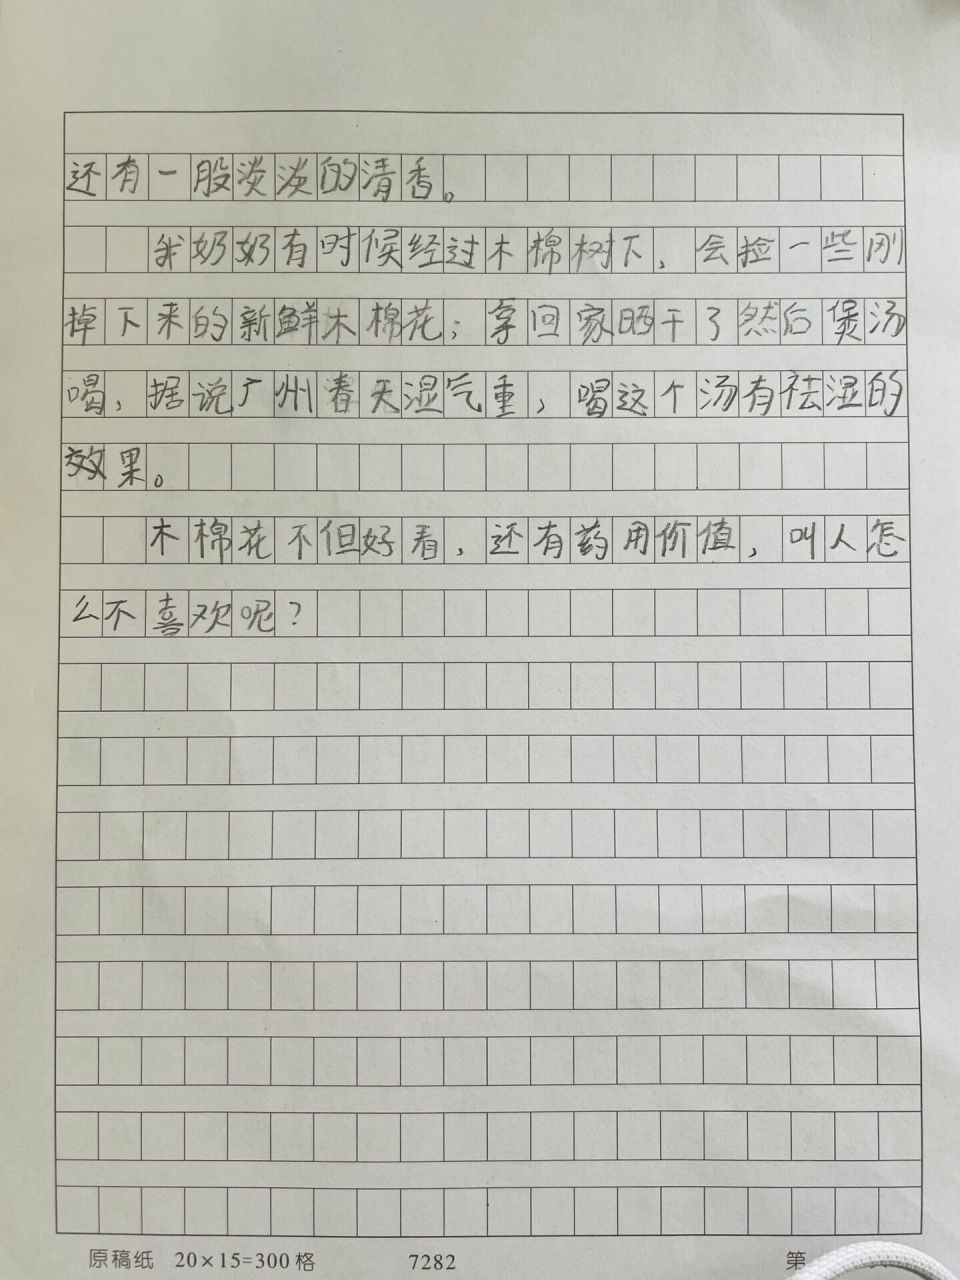 还有一股淡淡的清香。
我奶奶有时候经过木棉树下，会捡一些刚
掉下来的新鲜木棉花；拿回家晒干了然后煲汤
喝，据说广州春天湿气重，喝这个汤有祛湿的
效果。
木棉花不但好看，还有药用价值，叫人怎
么不喜欢呢？
原稿纸 20×15=300格 7282 第